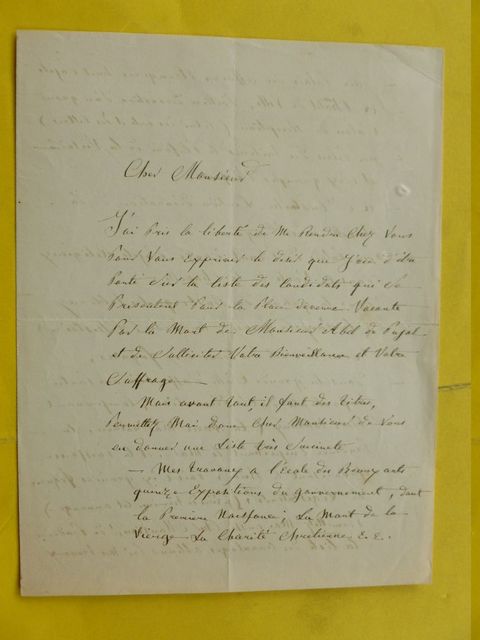 Cher Monsieur
J'ai pris la liberté de me rendre chez vous
pour vous exprimer le désir que j'ai d'être
porté sur la liste des candidats qui se
présentent pour la place devenue vacante
par la mort de Monsieur Abel de Pujol
et de solliciter votre Bienveillance et votre
suffrage —
Mais avant tout, il faut des titres,
permettez moi donc cher Monsieur de vous
en donner une liste très succincte
— Mes travaux à l'école des Beaux arts
quinze Expositions du gouvernement, dont
la première Naissance: La Mort de la
Vierge La Charité Chrétienne &. &.